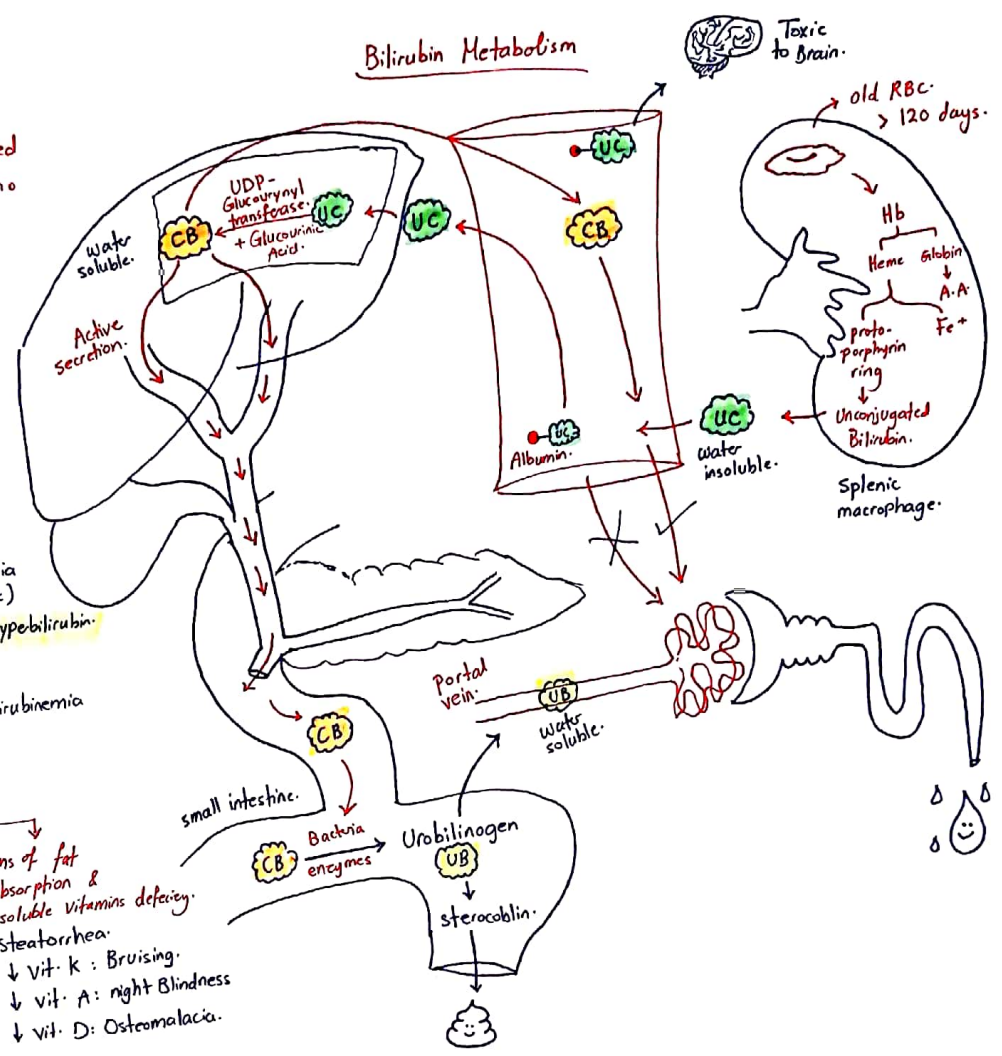 Bilirubin Metabolism
Toxic
to Brain.
old RBC.
> 120 days.
Hb
Heme
Globin
A.A.
Fe+
proto-
porphyrin
ring
Unconjugated
Bilirubin.
Splenic
macrophage.
UC
water
insoluble.
UC
CB
UC
Albumin.
UC
UC
UDP-
Glucourynyl
transferase.
+ Glucourinic
Acid.
CB
water
soluble.
Active
secretion.
Portal
vein.
UB
water
soluble.
CB
small intestine.
CB
Bacteria
enzymes
Urobilinogen
UB
sterocoblin.
ed
ia
ypebilirubin.
irubinemia
ns of fat
bsorption &
soluble vitamins defeciey.
steatorrhea.
↓ vit. K : Bruising.
↓ vit. A: night Blindness
↓ vit. D: Osteomalacia.